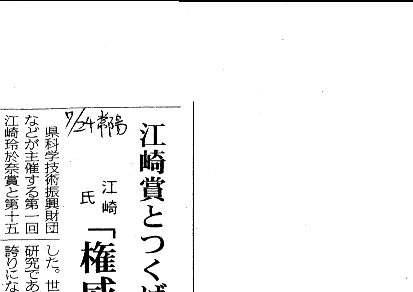 江崎賞とつくば
江崎氏
「権威
7/24 常陽
県科学技術振興財団
などが主催する第一回
江崎玲於奈賞と第十五
した。世
研究であ
誇りにな